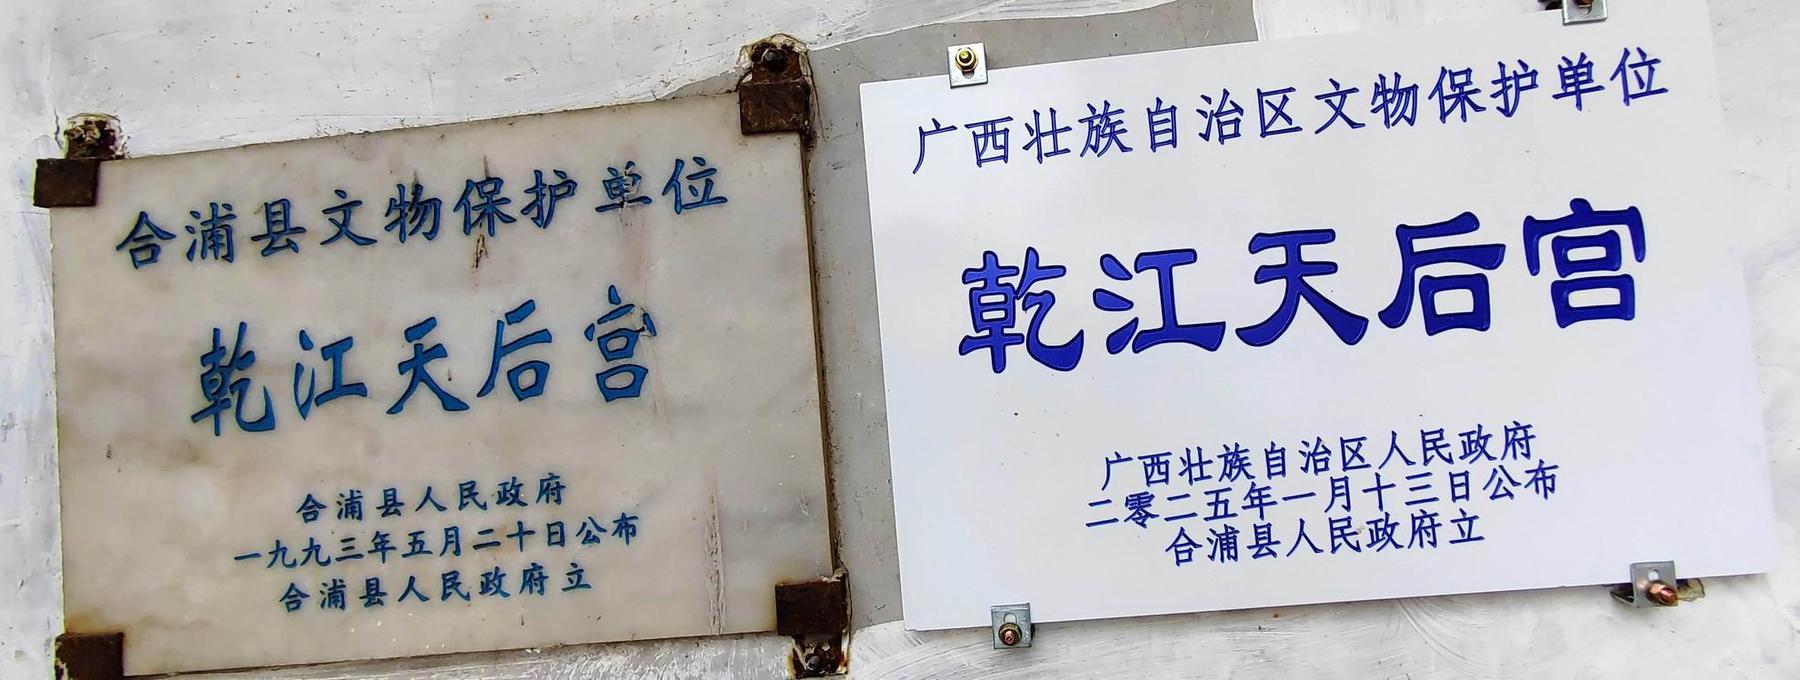 合浦县文物保护单位
乾江天后宫
合浦县人民政府
一九九三年五月二十日公布
合浦县人民政府立
广西壮族自治区文物保护单位
乾江天后宫
广西壮族自治区人民政府
二零二五年一月十三日公布
合浦县人民政府立